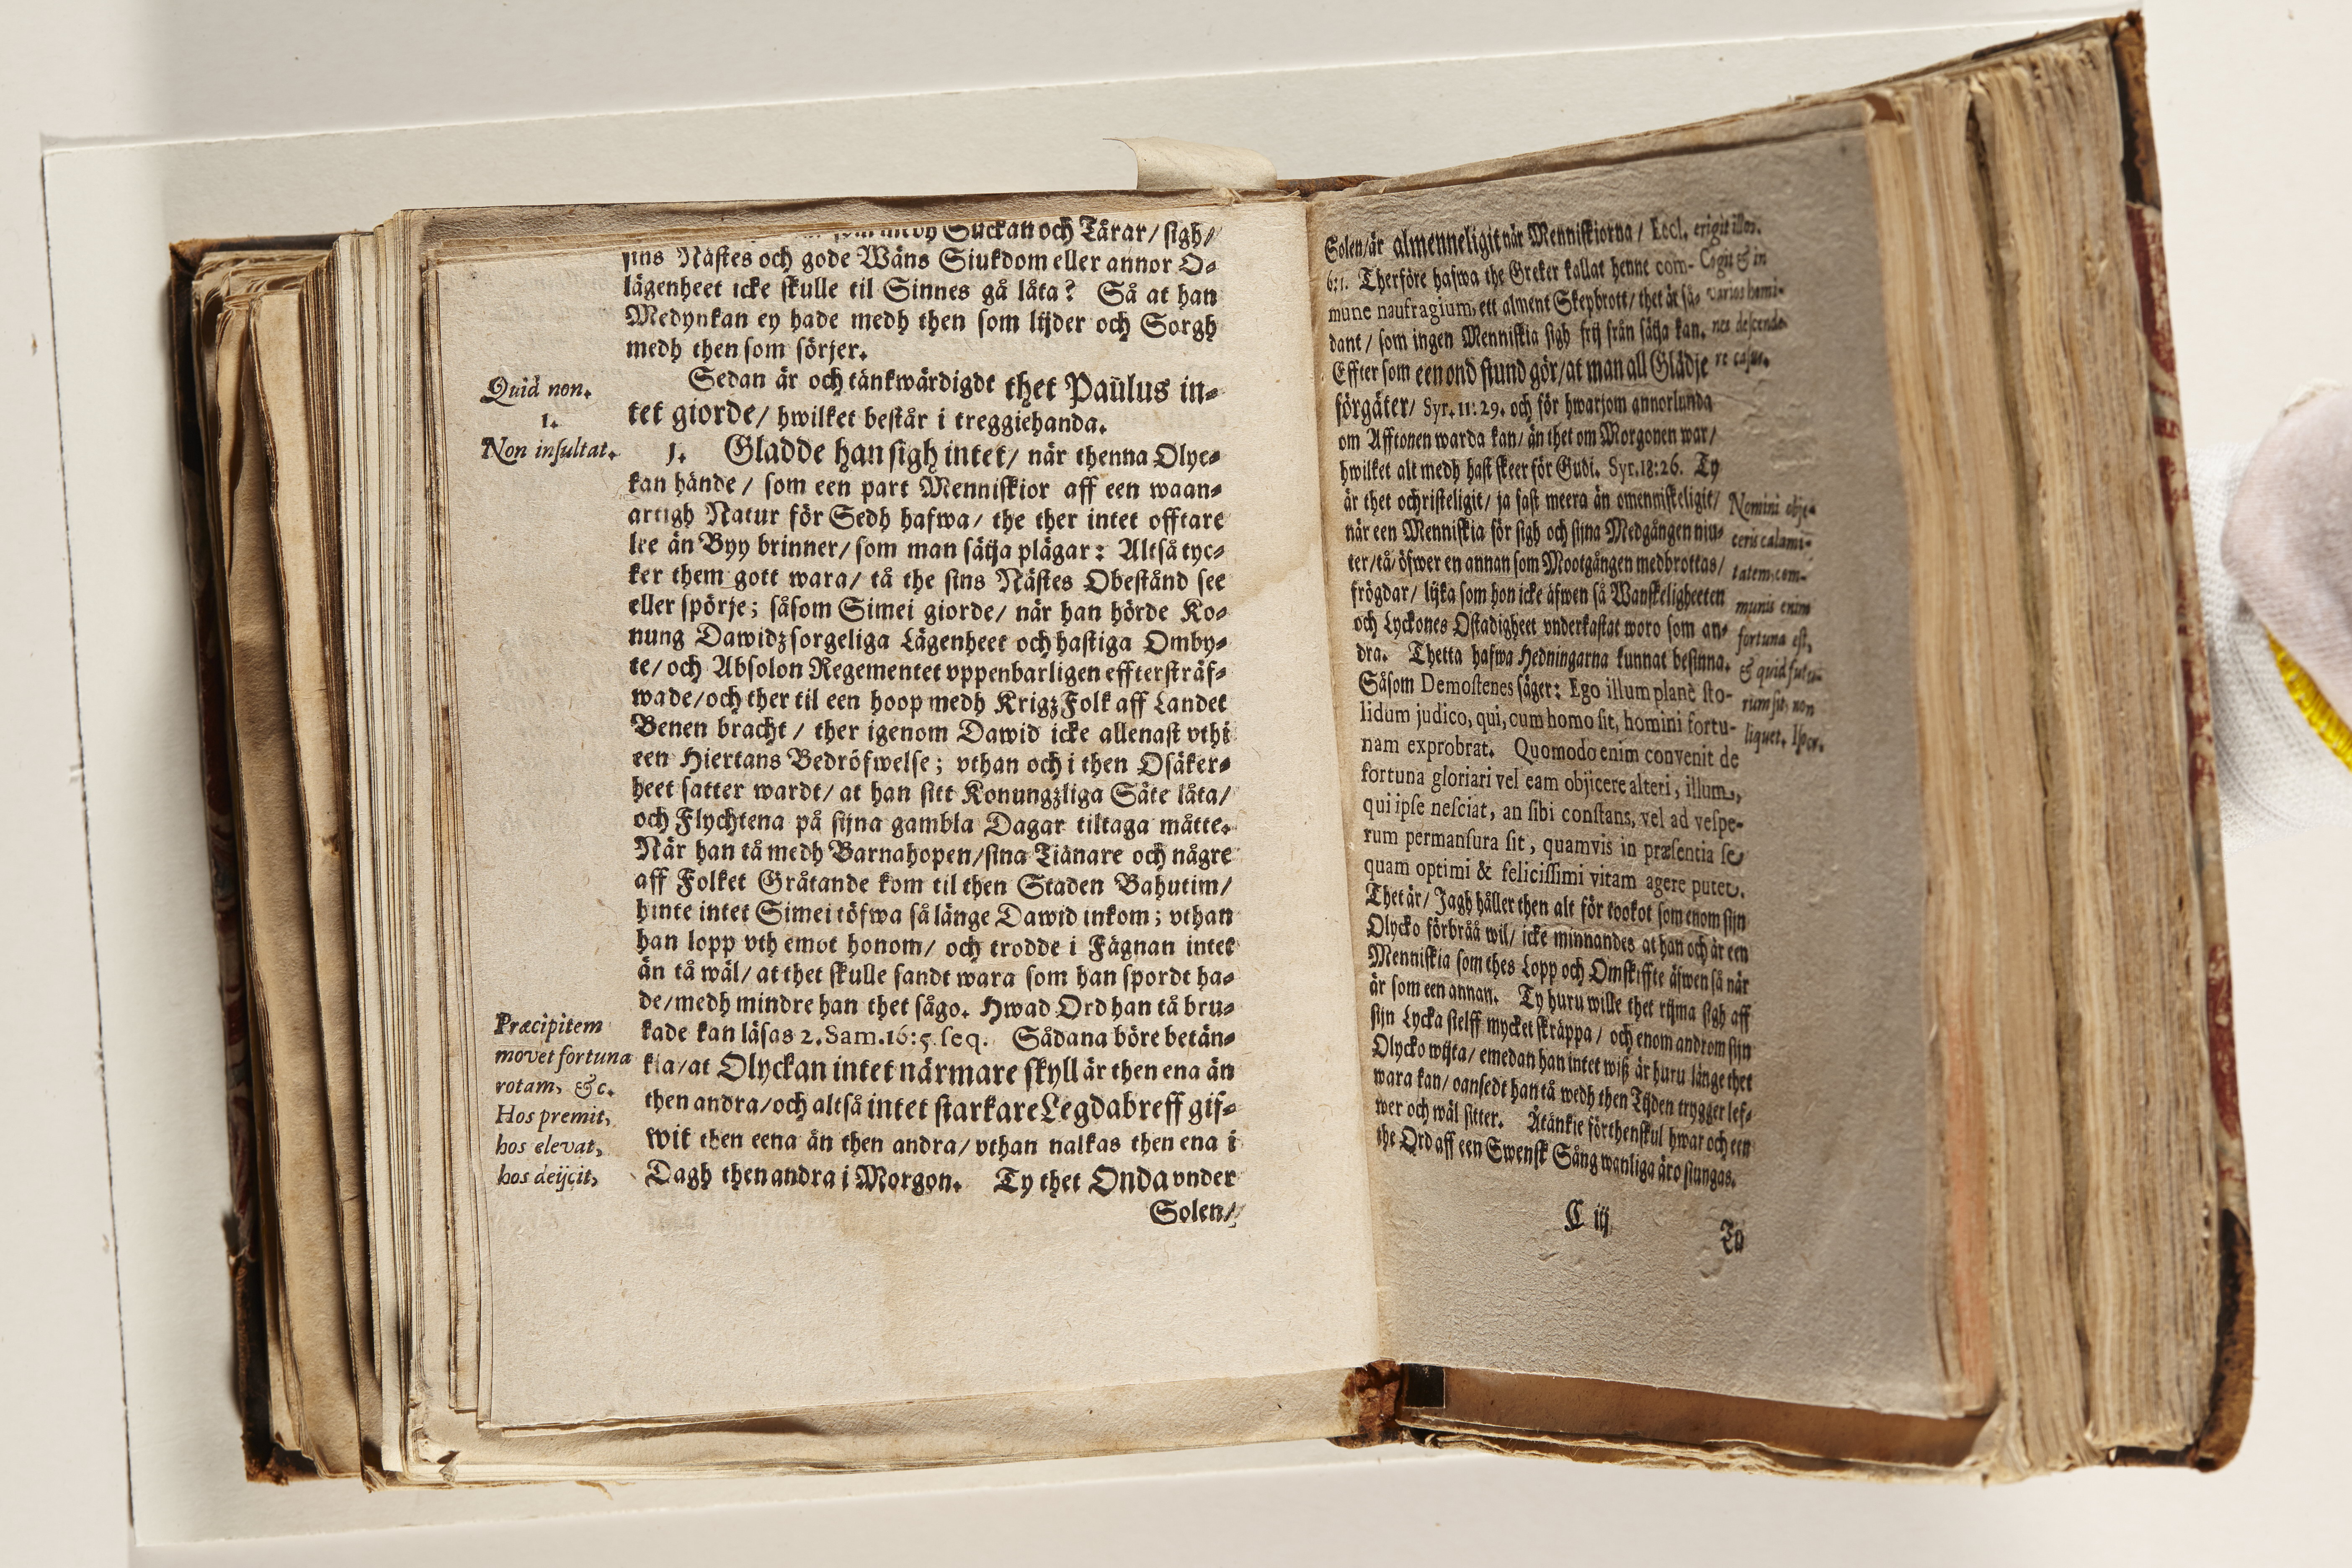 Suckan och Tårar/ sigh/
sins Nästes och gode Wäns Siukdom eller annor O-
lägenheet icke skulle til Sinnes gå låta? Så at han
Medynkan ey hade medh then som lijder och Sorgh
medh then som sörjer.
Sedan är och tänkwärdigdt thet Paulus in-
tet giorde/ hwilket består i treggiehanda.
Quid non.
1.
Non insultat.
1. Gladde han sigh intet/ när thenna Olyc-
kan hände/ som een part Menniskior aff een waan-
artigh Natur för Sedh hafwa/ the ther intet offtare
lee än Byy brinner/ som man sätja plägar: Altså tyc-
ker them gott wara/ tå the sins Nästes Obestånd see
eller spörje; såsom Simei giorde/ när han hörde Ko-
nung Dawidz sorgeliga Lägenheet och hastiga Omby-
te/ och Absolon Regementet vppenbarligen effterstråf-
wade/ och ther til een hoop medh KrigzFolk aff Landet
Benen bracht/ ther igenom Dawid icke allenast vthi
een Hiertans Bedröfwelse; vthan och i then Osäker-
heet satter wardt/ at han sitt Konungzliga Säte låta/
och Flychtena på sijna gambla Dagar tiltaga måtte.
När han tå medh Barnahopen/ sina Tiänare och någre
aff Folket Gråtande kom til then Staden Bahutim/
hinte intet Simei töfwa så länge Dawid inkom; vthan
han lopp vth emot honom/ och trodde i Fägnan intet
än tå wäl/ at thet skulle sandt wara som han spordt ha-
de/ medh mindre han thet sågo. Hwad Ord han tå bru-
kade kan läsas 2. Sam. 16:5. seq. Sådana böre betän-
kia/ at Olyckan intet närmare skyll är then ena än
then andra/ och altså intet starkare Legdabreff gif-
wit then eena än then andra/ vthan nalkas then ena i
Dagh then andra i Morgon. Ty thet Onda vnder
Præcipitem
movet fortuna
rotam, &c.
Hos premit,
hos elevat,
hos deijcit,
Solen/
Solen/ är almenneligit när Menniskiorna/ Eccl.
6:1. Therföre hafwa the Greker kallat henne com-
mune naufragium, ett alment Skepbrott/ thet är så-
dant/ som ingen Menniskia sigh frij från sätja kan.
Effter som een ond stund gör/ at man all Glädje
förgäter/ Syr. 11:29. och för hwarjom annorlunda
om Afftonen warda kan/ än thet om Morgonen war/
hwilket alt medh hast skeer för Gudi. Syr. 18:26. Ty
är thet ochristeligit/ ja fast meera än omenniskeligit/
när een Menniskia för sigh och sijna Medgången niu-
ter/ tå öfwer en annan som Mootgången medbrottas/
frögdar/ lijka som hon icke äfwen så Wanskeligheeten
och Lyckones Ostadigheet vnderkastat woro som an-
dra. Thetta hafwa Hedningarna kunnat besinna.
Såsom Demostenes säger: Ego illum planè sto-
lidum judico, qui, cum homo sit, homini fortu-
nam exprobrat. Quomodo enim convenit de
fortuna gloriari vel eam objicere alteri, illum,
qui ipse nesciat, an sibi constans, vel ad vespe-
rum permansura sit, quamvis in præsentia se
quam optimi & felicissimi vitam agere putet.
Thet är/ Jagh håller then alt för tookot som enom sijn
Olycko förbråå wil/ icke minnandes at han och är een
Menniskia som thes Lopp och Omskiffte äfwen så när
är som een annan. Ty huru wille thet rijma sigh aff
sijn Lycka sielff mycket skräppa/ och enom androm sijn
Olycko wijta/ emedan han intet wiß är huru länge thet
wara kan/ oansedt han tå wedh then Tijden trygger lef-
wer och wäl sitter. Åtänkie förthenskul hwar och een
the Ord aff een Swensk Sång wanliga äro siungas.
erigit illos.
Cogit & in
varios homi-
nes descende-
re casus.
Nomini obje-
ceris calami-
tatem, com-
munis enim
fortuna est,
& quid futu-
rum sit, non
liquet. Isocr.
C iij
Tå